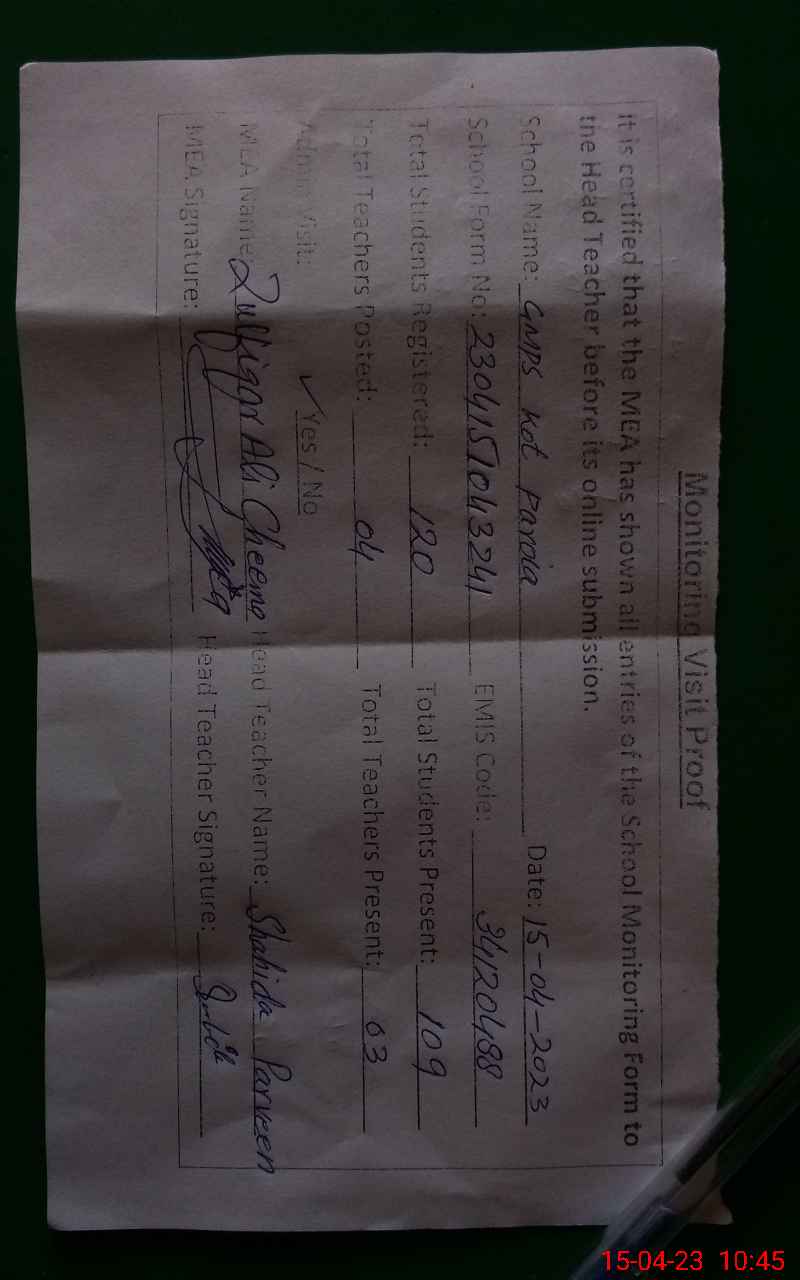 Monitoring Visit Proof
It is certified that the MEA has shown all entries of the School Monitoring Form to
the Head Teacher before its online submission.
School Name: GMPS Kot Paroia Date: 15-04-2023
School Form No: 2304151043241 EMIS Code: 34120488
Total Students Registered: 120 Total Students Present: 109
Total Teachers Posted: 04 Total Teachers Present: 03
Admin Visit: ✓ Yes / No
MEA Name: Zulfiqar Ali Cheema Head Teacher Name: Shahida Parveen
MEA Signature: Head Teacher Signature:
15-04-23 10:45